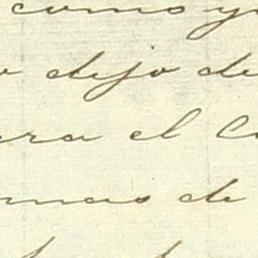 como y
dijo de
ra el C
mas de